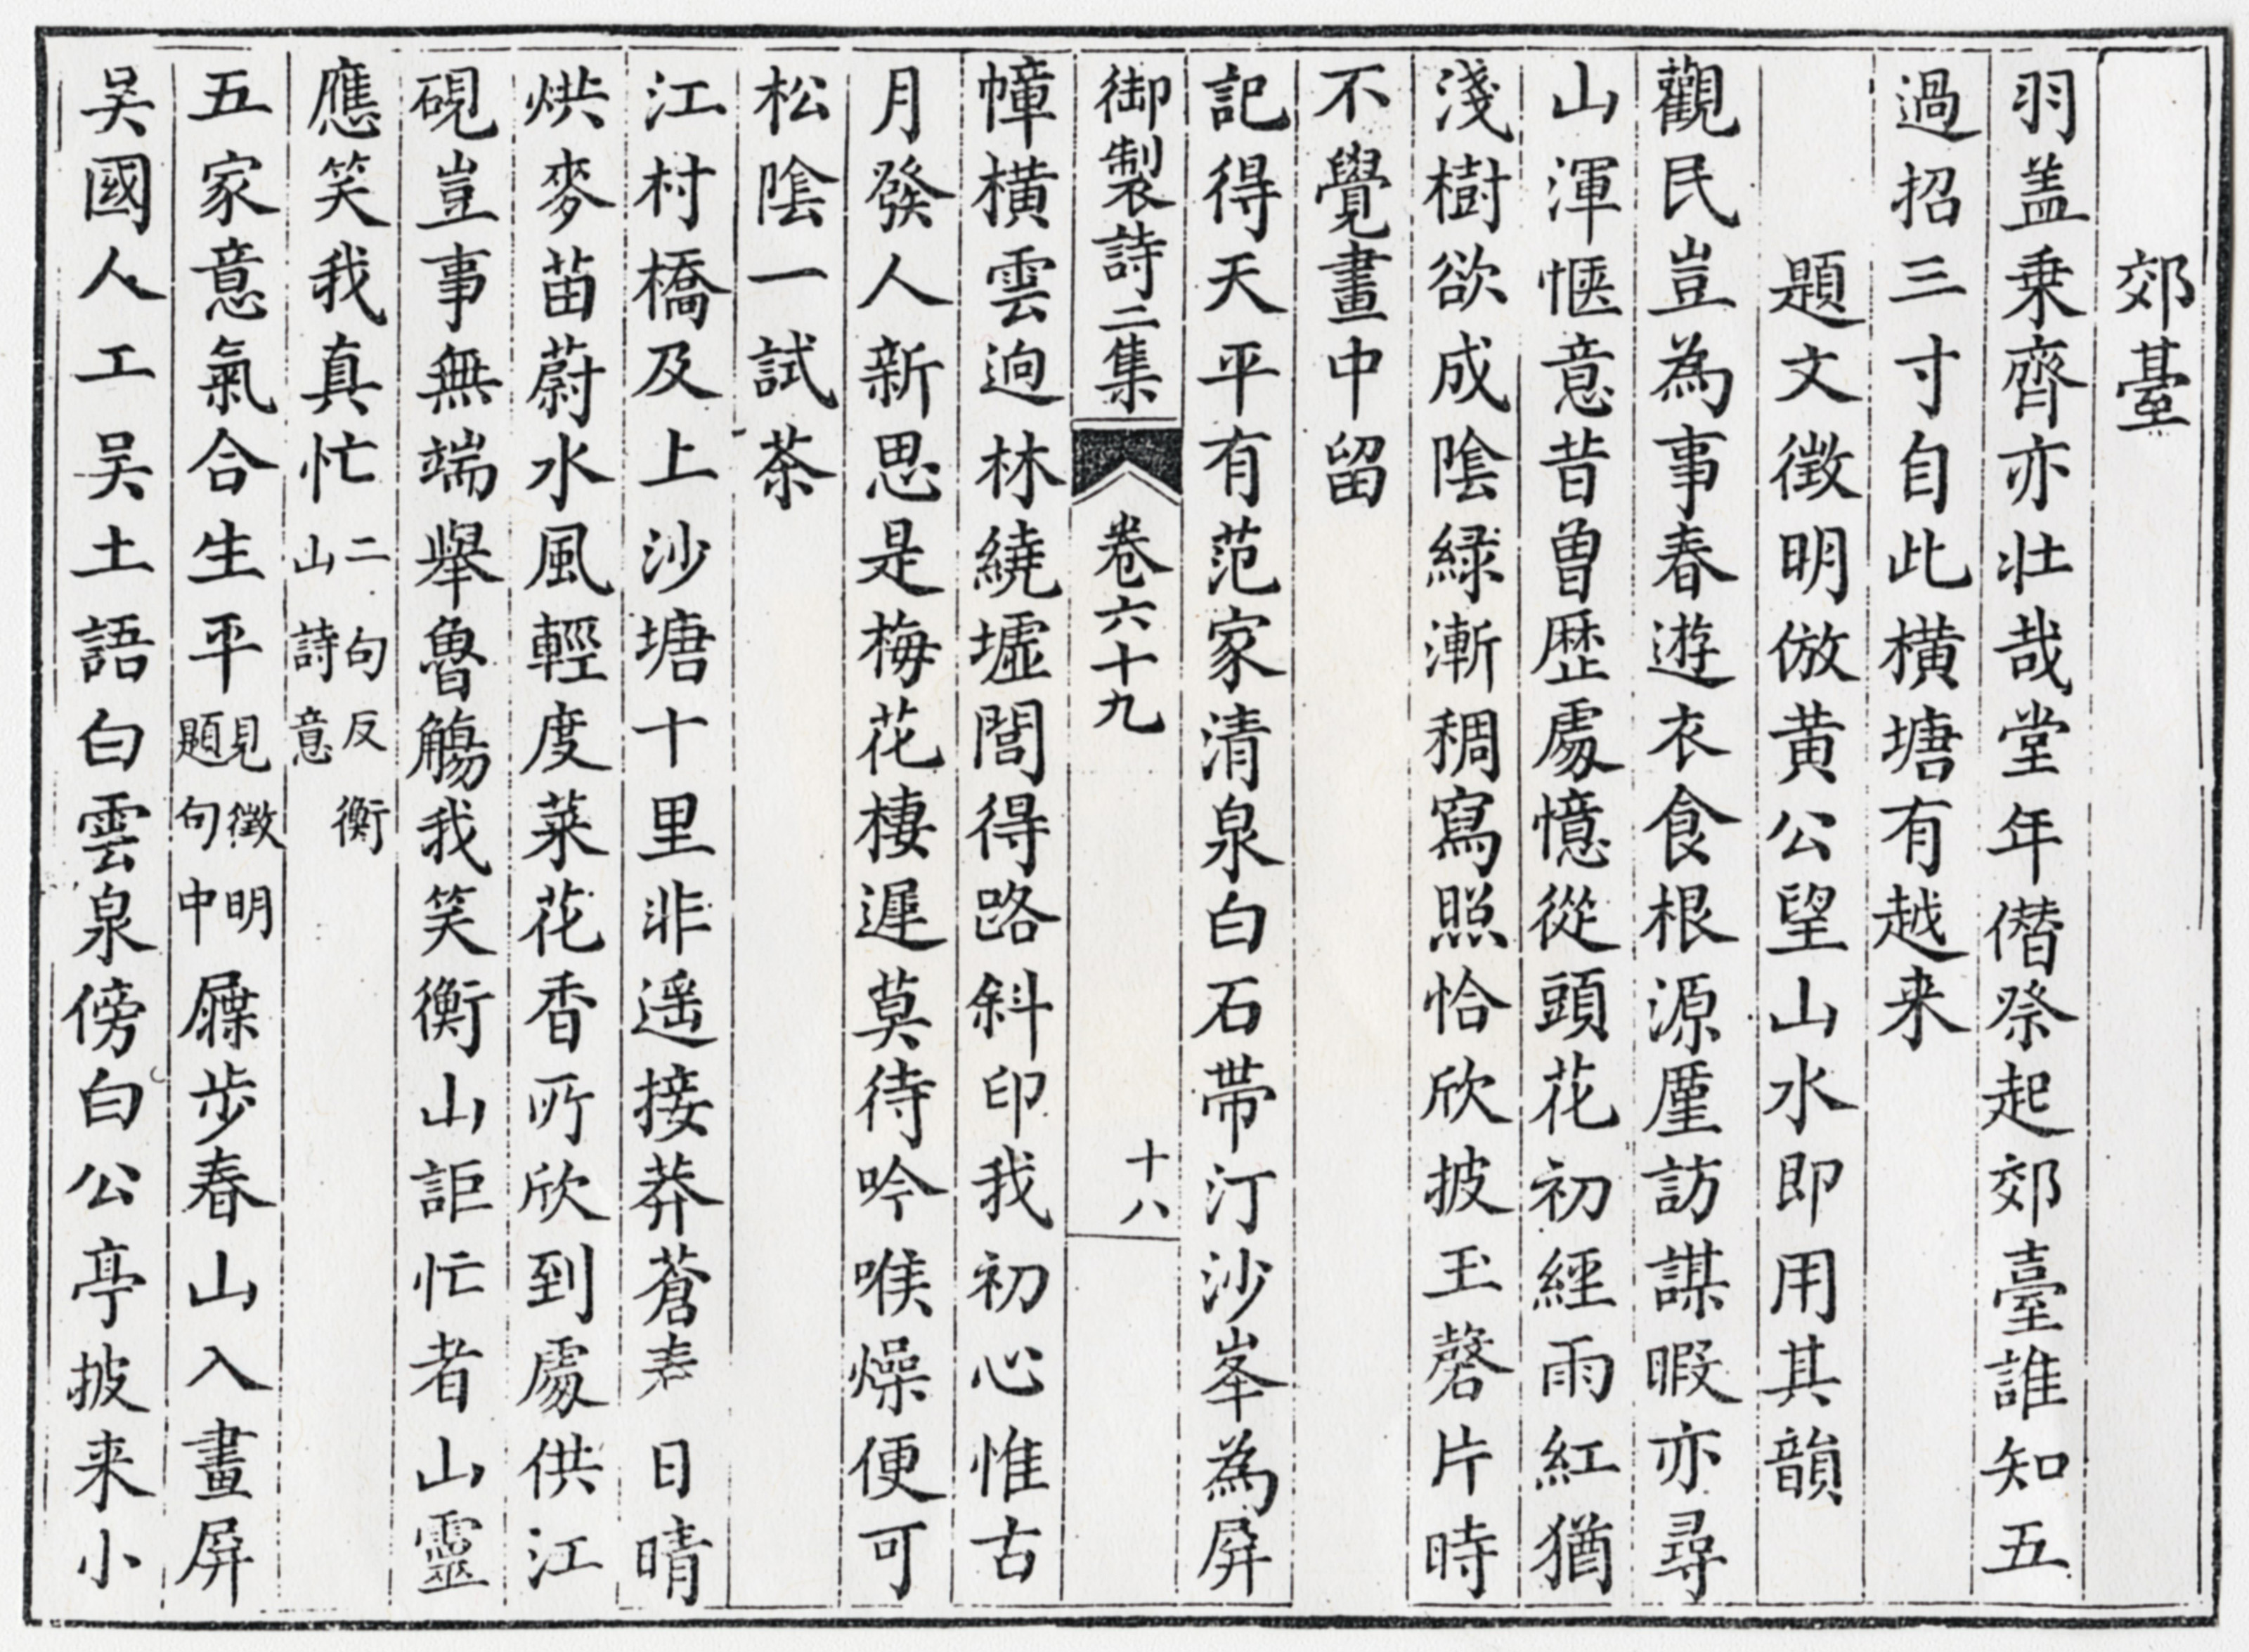 郊臺
羽盖乗齊亦壮哉堂年僣祭起郊臺誰知五
過招三寸自此横塘有越来
題文徵明倣黄公望山水即用其韻
觀民豈為事春遊衣食根源厪訪謀暇亦尋
山渾愜意昔曽歴處憶從頭花初經雨紅猶
淺樹欲成隂緑漸稠寫照恰欣披玉磬片時
不覺畫中留
記得天平有范家清泉白石帯汀沙峯為屏
御製詩二集 卷六十九 十八
幛横雲逈林繞墟閭得路斜印我初心惟古
月發人新思是梅花棲遲莫待吟喉燥便可
松隂一試茶
江村橋及上沙塘十里非遥接莽蒼日晴
烘麥苗蔚水風輕度菜花香所欣到處供江
硯豈事無端舉魯觴我笑衡山詎忙者山靈
應笑我真忙二句反衡山詩意
五家意氣合生平見徵明題句中屧步春山入畫屏
吴國人工吴土語白雲泉傍白公亭披来小